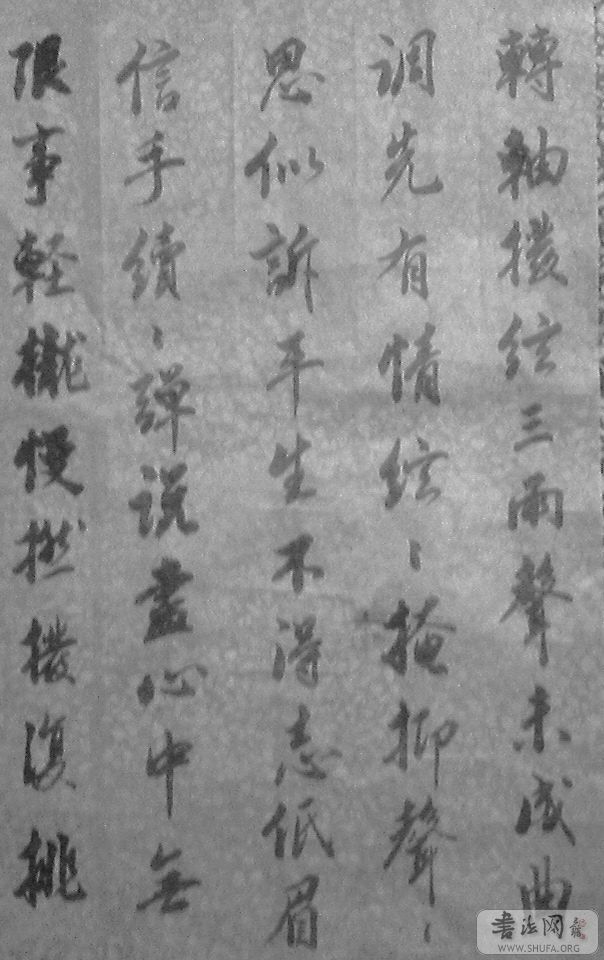 轉軸撥絃三兩聲未成曲
调先有情絃丶掩抑聲丶
思似訴平生不得志低眉
信手續丶彈说盡心中無
限事軽攏慢撚撥復挑
書法网
WWW.SHUFA.ORG